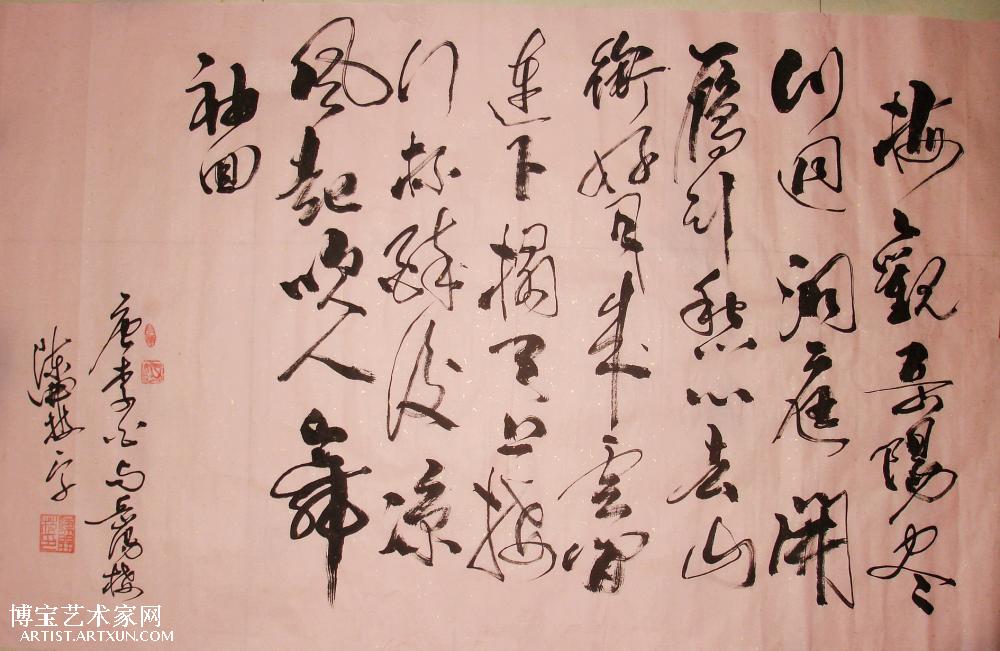 楼觀岳陽尽
川迥洞庭開
雁引愁心去山
銜好月来雲間
連下榻天上接
行杯醉後凉
風起吹人舞
袖回
唐李白与岳陽楼
陈 字
博宝艺术家网
ARTIST.ARTXUN.COM